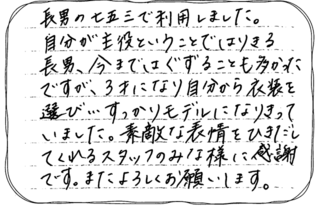 長男の七五三で利用しました。
自分が主役ということではりきる
長男、今まではぐずることも多かった
ですが、3才になり自分から衣装を
選び…すっかりモデルになりきって
いました。素敵な表情をひきだして
くれるスタッフのみな様に感謝
です。またよろしくお願いします。